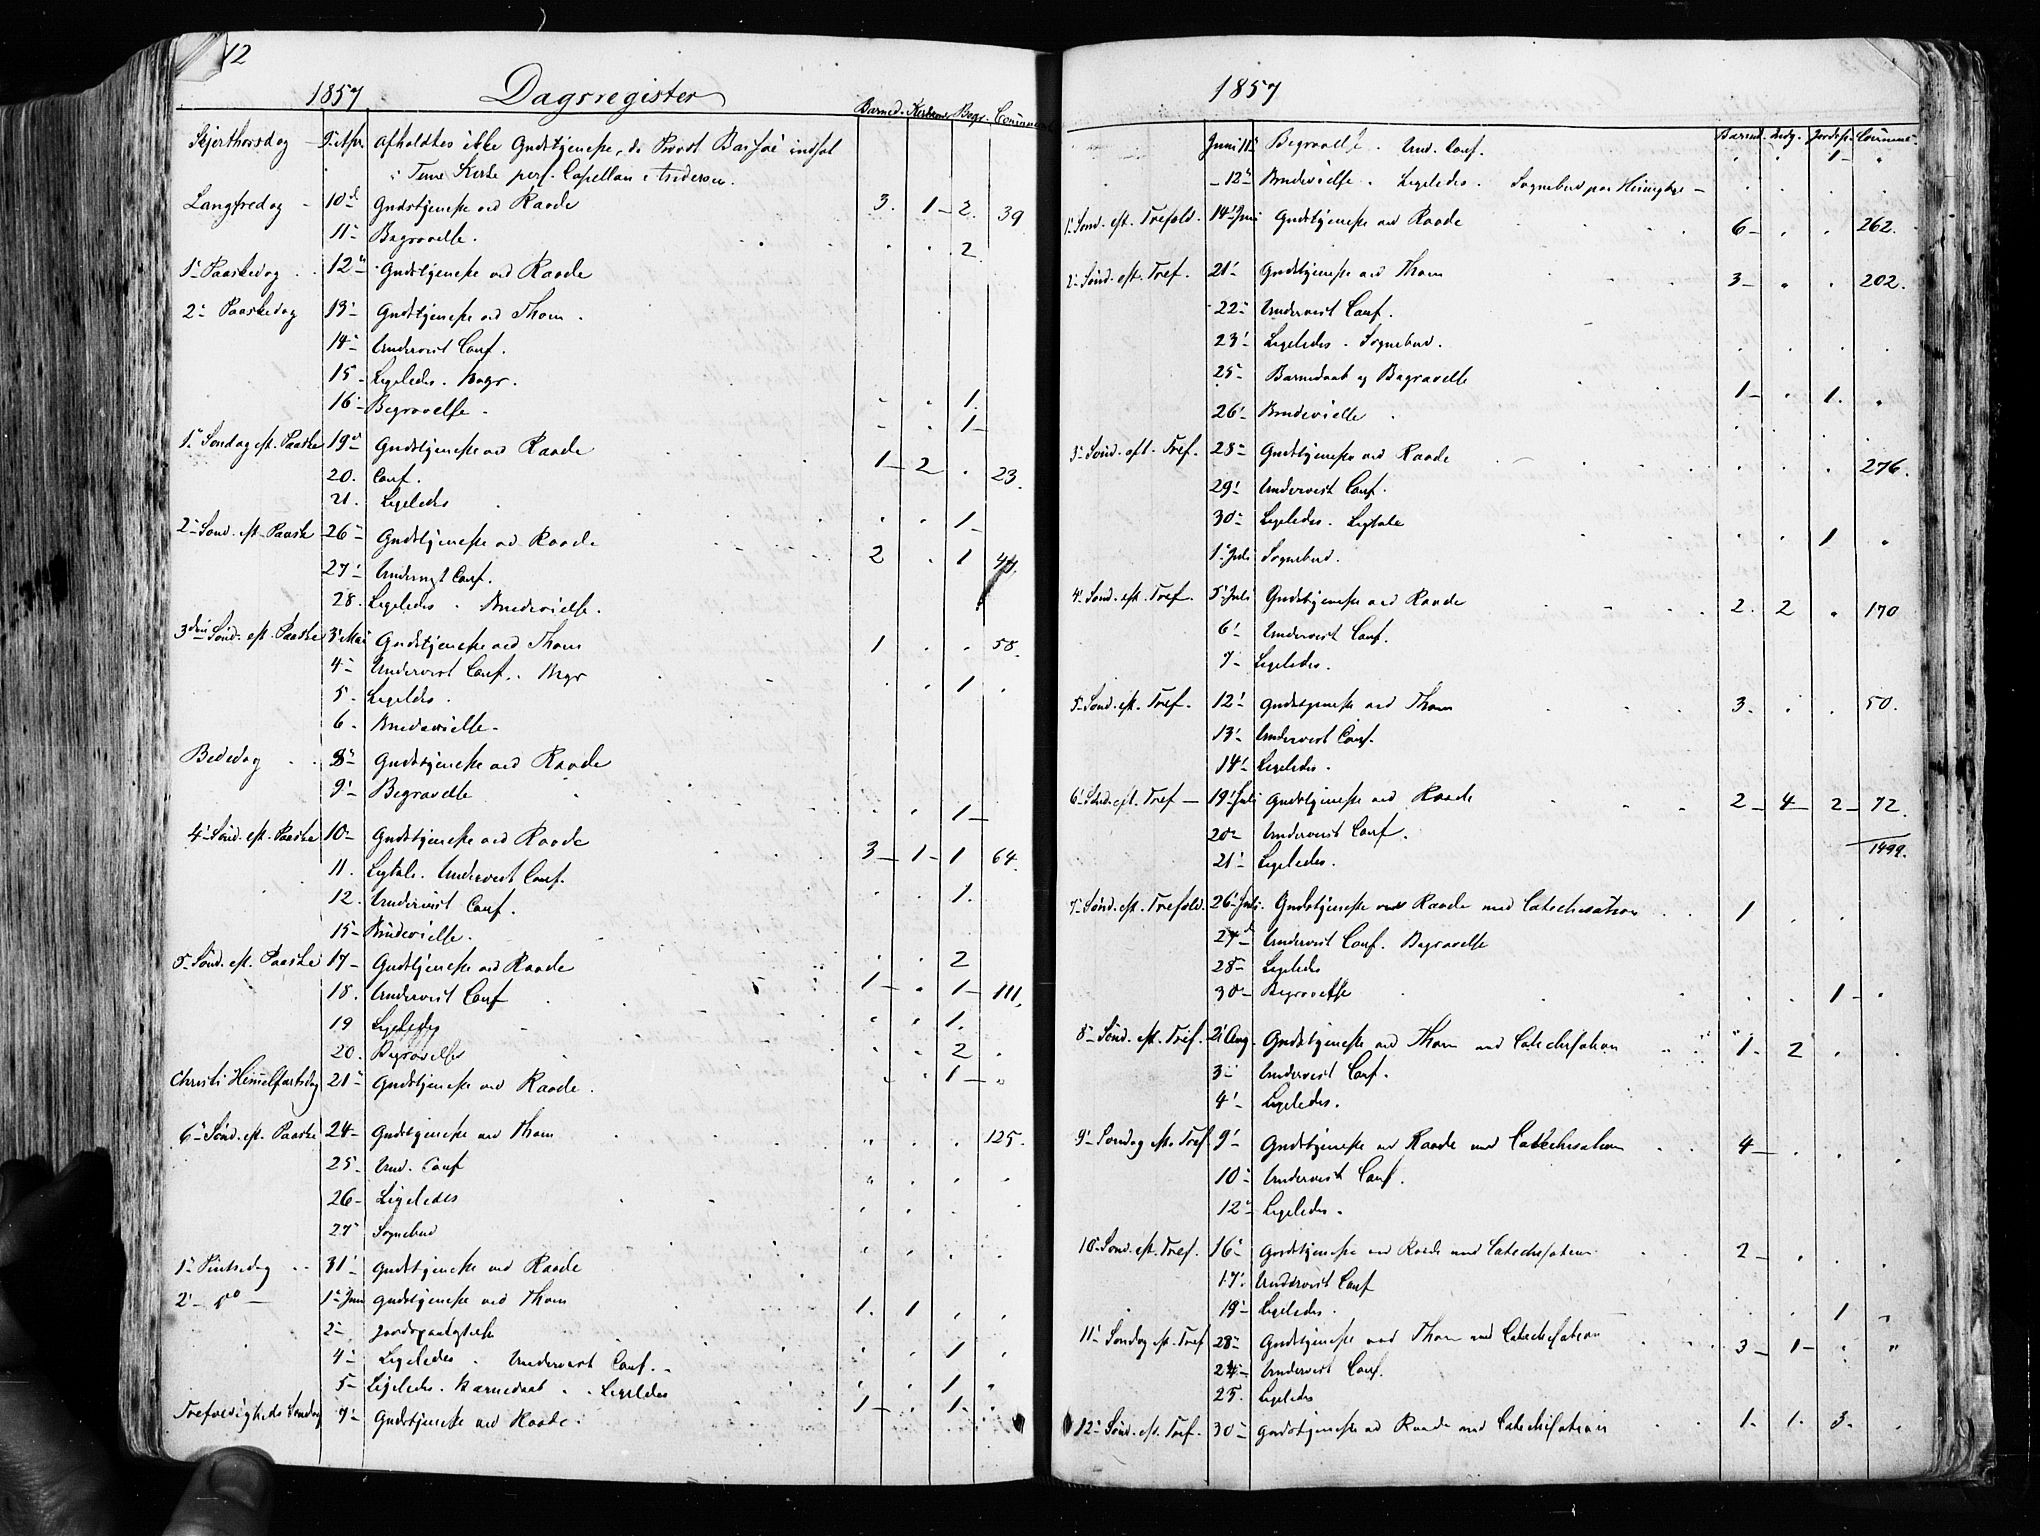 12
1857 Dagsregister
Barned. Begr. Commun.
Skjerthorsdag 9' Apr. afholdtes ikke Gudstjeneste, da Provst indsat
i Tune Kirke pers. Capellan
Langfredag 10d Gudstjeneste ved Raade 3. 1 - 2. 39
11- Begravelse. 2.
1' Paaskedag 12' Gudstjeneste ved Raade
2- Paaskedag 13' Gudstjeneste ved Thom.
14- Undervist Conf.
15- Ligeledes. Begr. 1.
16' Begravelse. 1-
1' Søndag eft. Paaske 19' Gudstjeneste ved Raade 1 - 2 . 23.
20. Conf.
21. Ligeledes 1-
2- Sønd. eft. Paaske 26- Gudstjeneste ved Raade 2 . 1 44.
27' Undervist Conf.
28. Ligeledes. Brudevielse.
3die Sønd. eft. Paaske 3' Mai Gudstjeneste ved Thom 1 . . 58.
4- Undervist Conf. Begr 1
5- Ligeledes.
6- Brudevielse.
Bededag 8- Gudstjeneste ved Raade
9' Begravelse 1-
4' Sønd. eft. Paaske 10- Gudstjeneste ved Raade 3 - 1 - 1 64.
11. Ligtale. Undervist Conf. 1.
12. Undervist Conf.
15- Brudevielse.
5- Sønd. eft. Paaske 17- Gudstjeneste ved Raade 2
18. Undervist Conf 1 - . 1 - 111.
19 Ligeledes 1.
20. Begravelse 2
Christi Himmelfartsdag 21- Gudstjeneste ved Raade. 1 -
6- Sønd. eft. Paaske 24- Gudstjeneste ved Thom 125.
25- Und. Conf
26- Ligeledes
27- Sognebud
1' Pintsedag 31' Gudstjeneste ved Raade
2' - do - 1' Juni Gudstjeneste ved Thom 1. 1
2- Jordspaakastelse
4- Ligeledes. Undervist Conf. 1
5- Ligeledes. Barnedaab. Ligeledes 1
Trefoldigheds Søndag 7' Gudstjeneste ved Raade. 1 - . 1-
1857
Barned. Jordsp. Commun.
Juni 11' Begravelse. Und. Conf. 1-
- 12' Brudevielse. Ligeledes. Sognebud
1' Sønd. eft. Trefold. 14' Juni Gudstjeneste ved Raade 6- 262.
2' Sønd. eft. Tref. 21' Gudstjeneste ved Thom 3- 202.
22- Undervist Conf.
23' Ligeledes. Sognebud.
25- Barnedaab og Begravelse 1- . 1.
26' Brudevielse
3' Sønd. eft. Tref. 28- Gudstjeneste ved Raade 276.
29' Undervist Conf.
30- Ligeledes. Ligtale 1
1' Juli Sognebud.
4' Sønd. eft. Tref. 5' Juli Gudstjeneste ved Raade 2. 2 . 170
6' Undervist Conf.
7- Ligeledes.
5' Sønd. eft. Tref. 12' Gudstjeneste ved Thom 3. 50.
13' Undervist Conf.
14' Ligeledes.
6' Sønd. eft. Tref - 19' Juli Gudstjeneste ved Raade 2 - 4 - 2 - 72.
20- Undervist Conf. 1499.
21' Ligeledes.
7' Sønd. eft. Trefold. 26' Juli Gudstjeneste ved Raade med Catechisation 1
27d Undervist Conf. Begravelse
28- Ligeledes
30- Begravelse 1-
8- Sønd. eft. Tref. 2' Aug. Gudstjeneste ved Thom med Catechisation 1. 2
3- Undervist Conf.
4' Ligeledes.
9' Søndag eft. Tref 9' Gudstjeneste ved Raade med Catechisation 4-
10- Undervist Conf.
12- Ligeledes.
10' Sønd. eft. Tref. 16' Gudstjeneste ved Raade med Catechisation 2-
17. Undervist Conf
19' Ligeledes. 1
11' Søndag eft. Tref 23- Gudstjeneste ved Thom med Catechisation 3 - 1 -
24- Undervist Conf.
25. Ligeledes
12' Sønd. eft. Tref. 30- Gudstjeneste ved Raade med Catechisation 1. 1. 3.